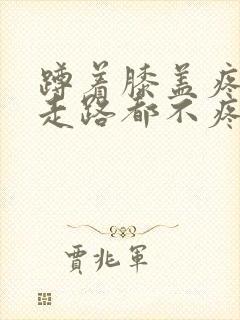 蹲着膝盖疼
走路都不疼
贾兆军